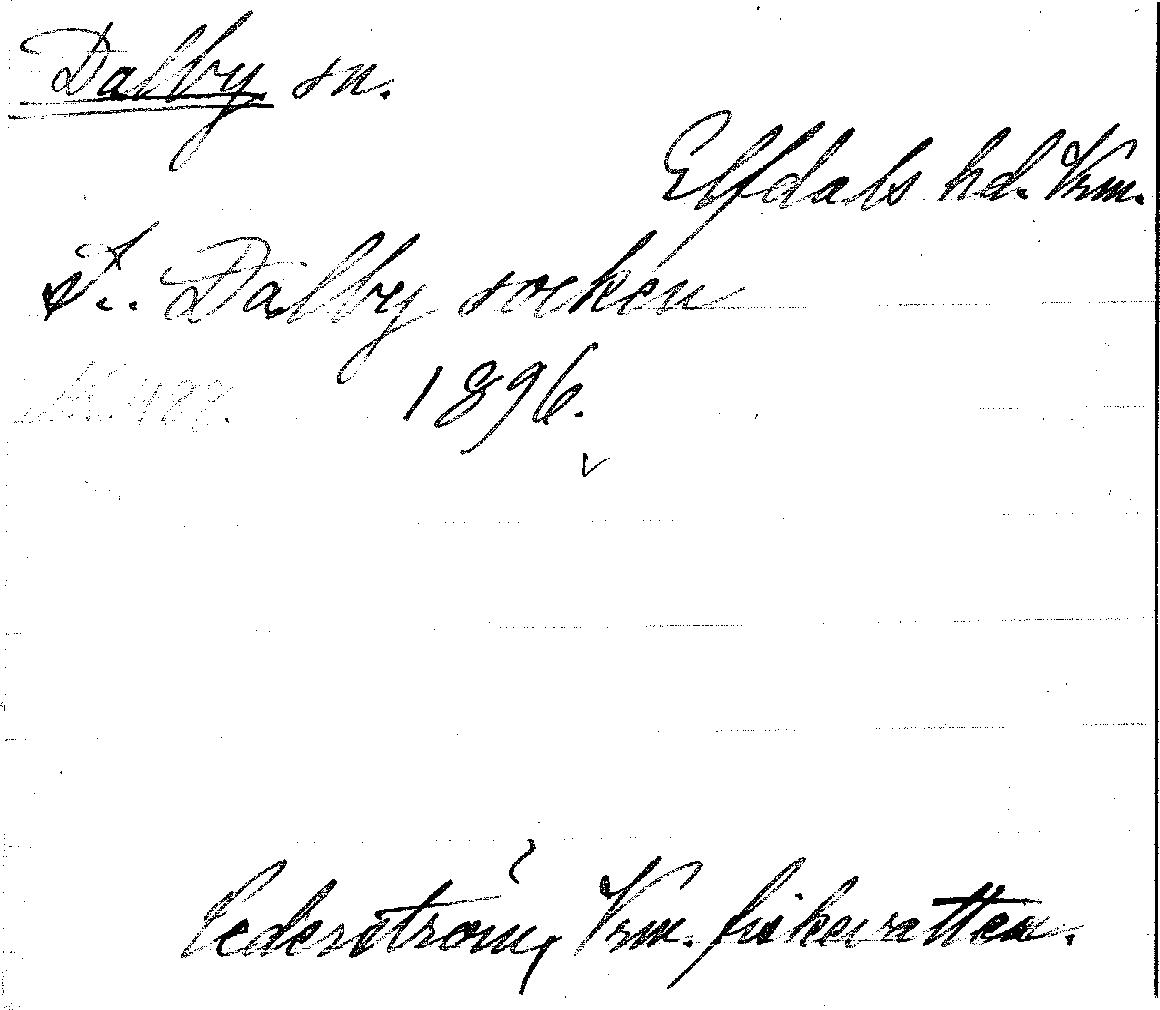 Dalby sn.
Elfdals hd. Vrm.
i Dalby socken
1896.
Cederström, Vrm. fiskevatten.